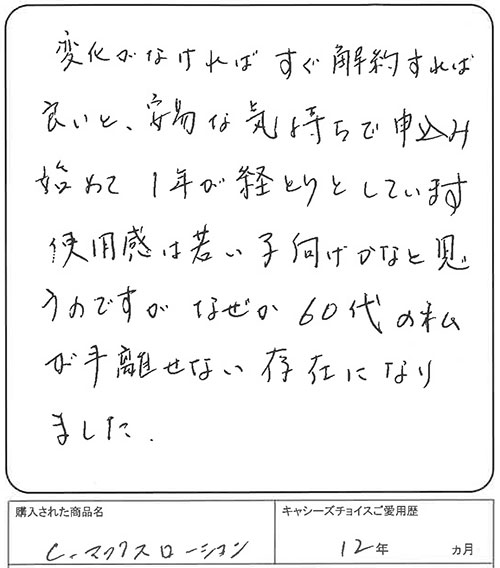 変化がなければ すぐ解約すれば
良いと、安易な気持ちで申込み
始めて 1年が経とうとしています
使用感は若い子向けかなと思
うのですが なぜか 60代の私
が手離せない存在になり
ました.
購入された商品名
キャシーズチョイスご愛用歴
C.マックスローション
12年 ヵ月